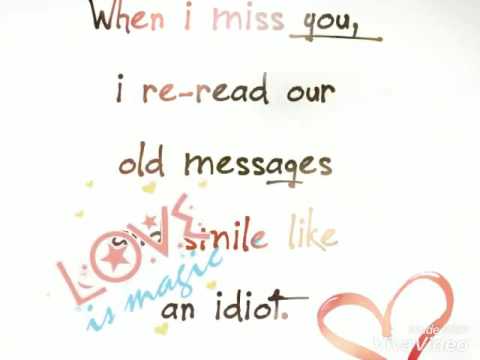 When i miss you,
i re-read our
old messages
and smile like
an idiot.
LOVE
is magic
VivaVideo